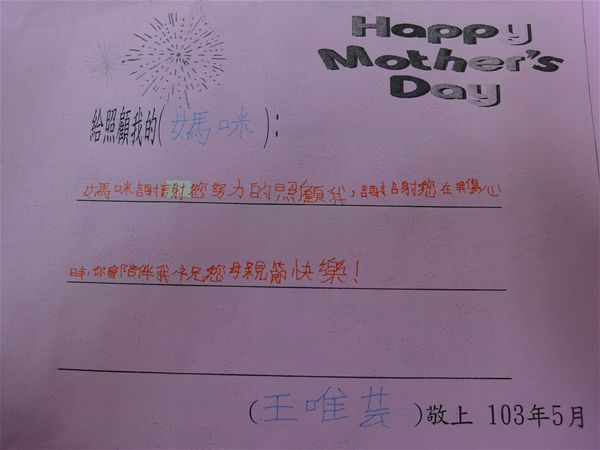 Happy
Mother's
Day
給照顧我的(媽咪):
媽咪謝謝您努力的照顧我,謝謝您在我傷心
時,你會陪伴我祝您母親節快樂!
(王唯芸)敬上 103年5月